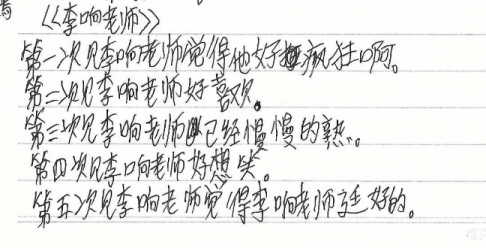 《李响老师》
第一次见李响老师觉得他好疯狂啊。
第二次见李响老师好喜欢。
第三次见李响老师已经慢慢的熟。
第四次见李响老师好想笑。
第五次见李响老师觉得李响老师廷好的。